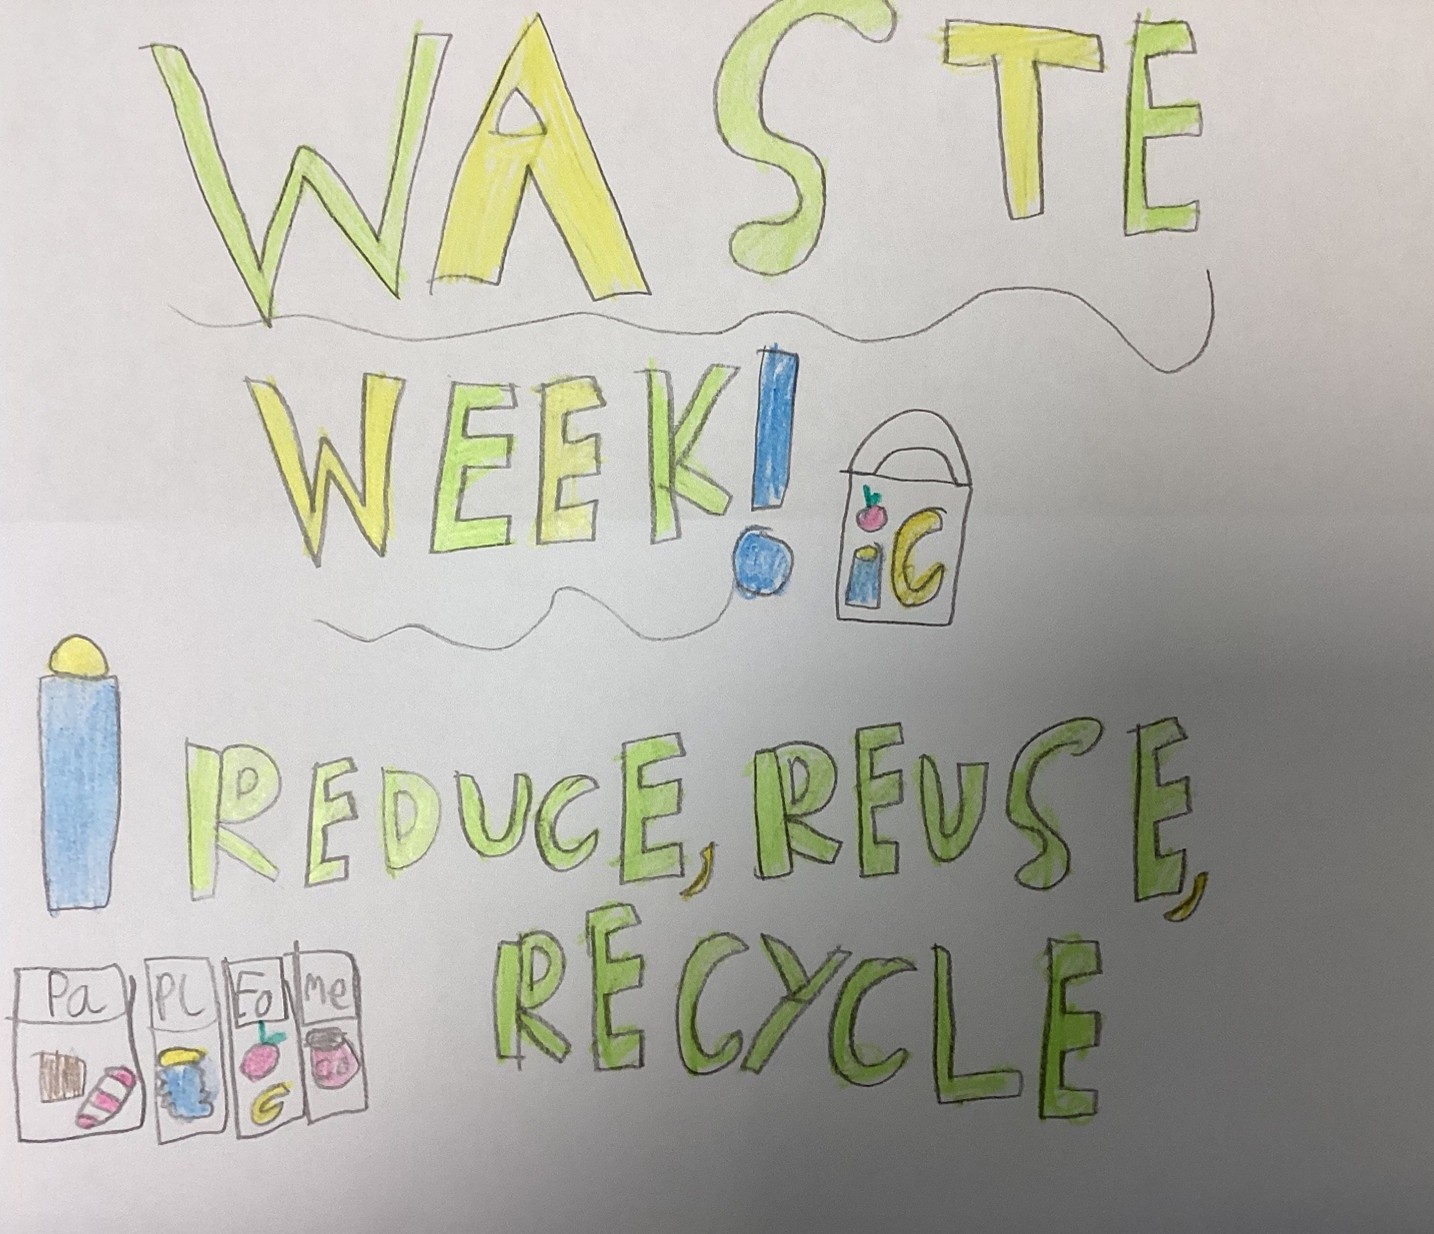 WASTE
WEEK!
REDUCE, REUSE,
RECYCLE
Pa Pl Fo Me